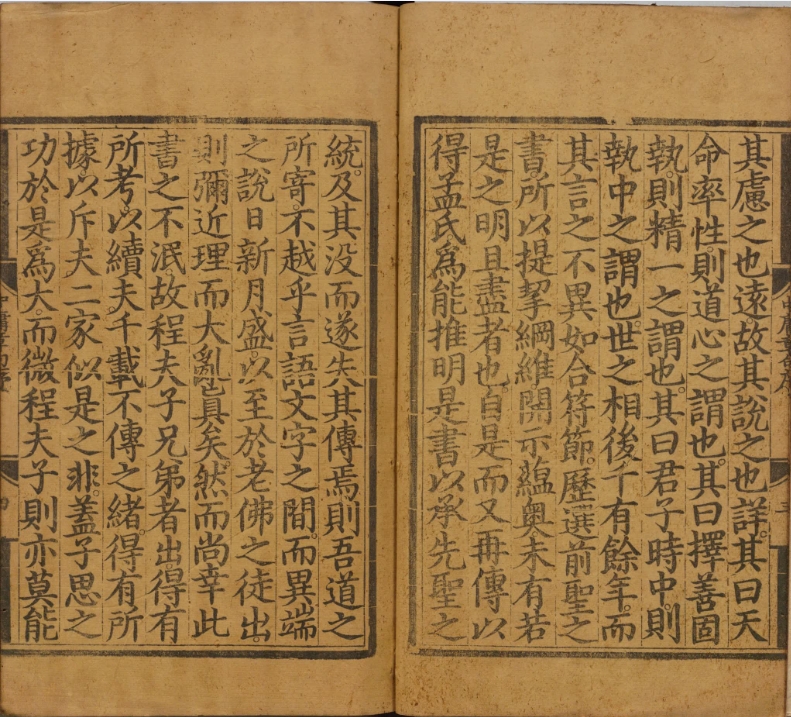 其慮之也遠故其說之也詳。其曰天
命率性。則道心之謂也。其曰擇善固
執。則精一之謂也。其曰君子時中。則
執中之謂也。世之相後千有餘年。而
其言之不異如合符節。歷選前聖之
書。所以提挈綱維開示蘊奧未有若
是之明且盡者也。自是而又再傳以
得孟氏爲能推明是書以承先聖之
統。及其没而遂失其傳焉則吾道之
所寄。不越乎言語文字之間。而異端
之說日新月盛。以至於老佛之徒出。
則彌近理而大亂眞矣。然而尚幸此
書之不泯。故程夫子兄弟者出。得有
所考。以續夫千載不傳之緒。得有所
據。以斥夫二家似是之非。蓋子思之
功於是爲大。而微程夫子則亦莫能